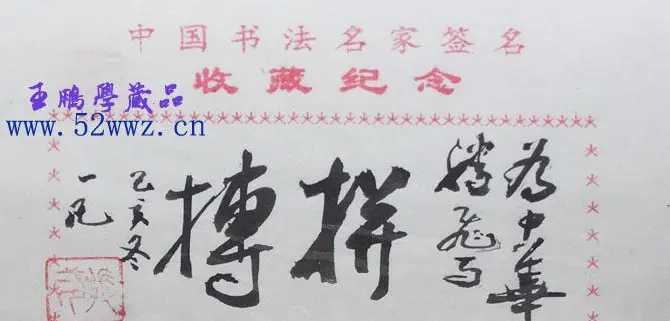 中国书法名家签名
收藏纪念
王鹏學藏品
www.52wwz.cn
为中華
腾飞而
拼搏
乙亥冬
一凡